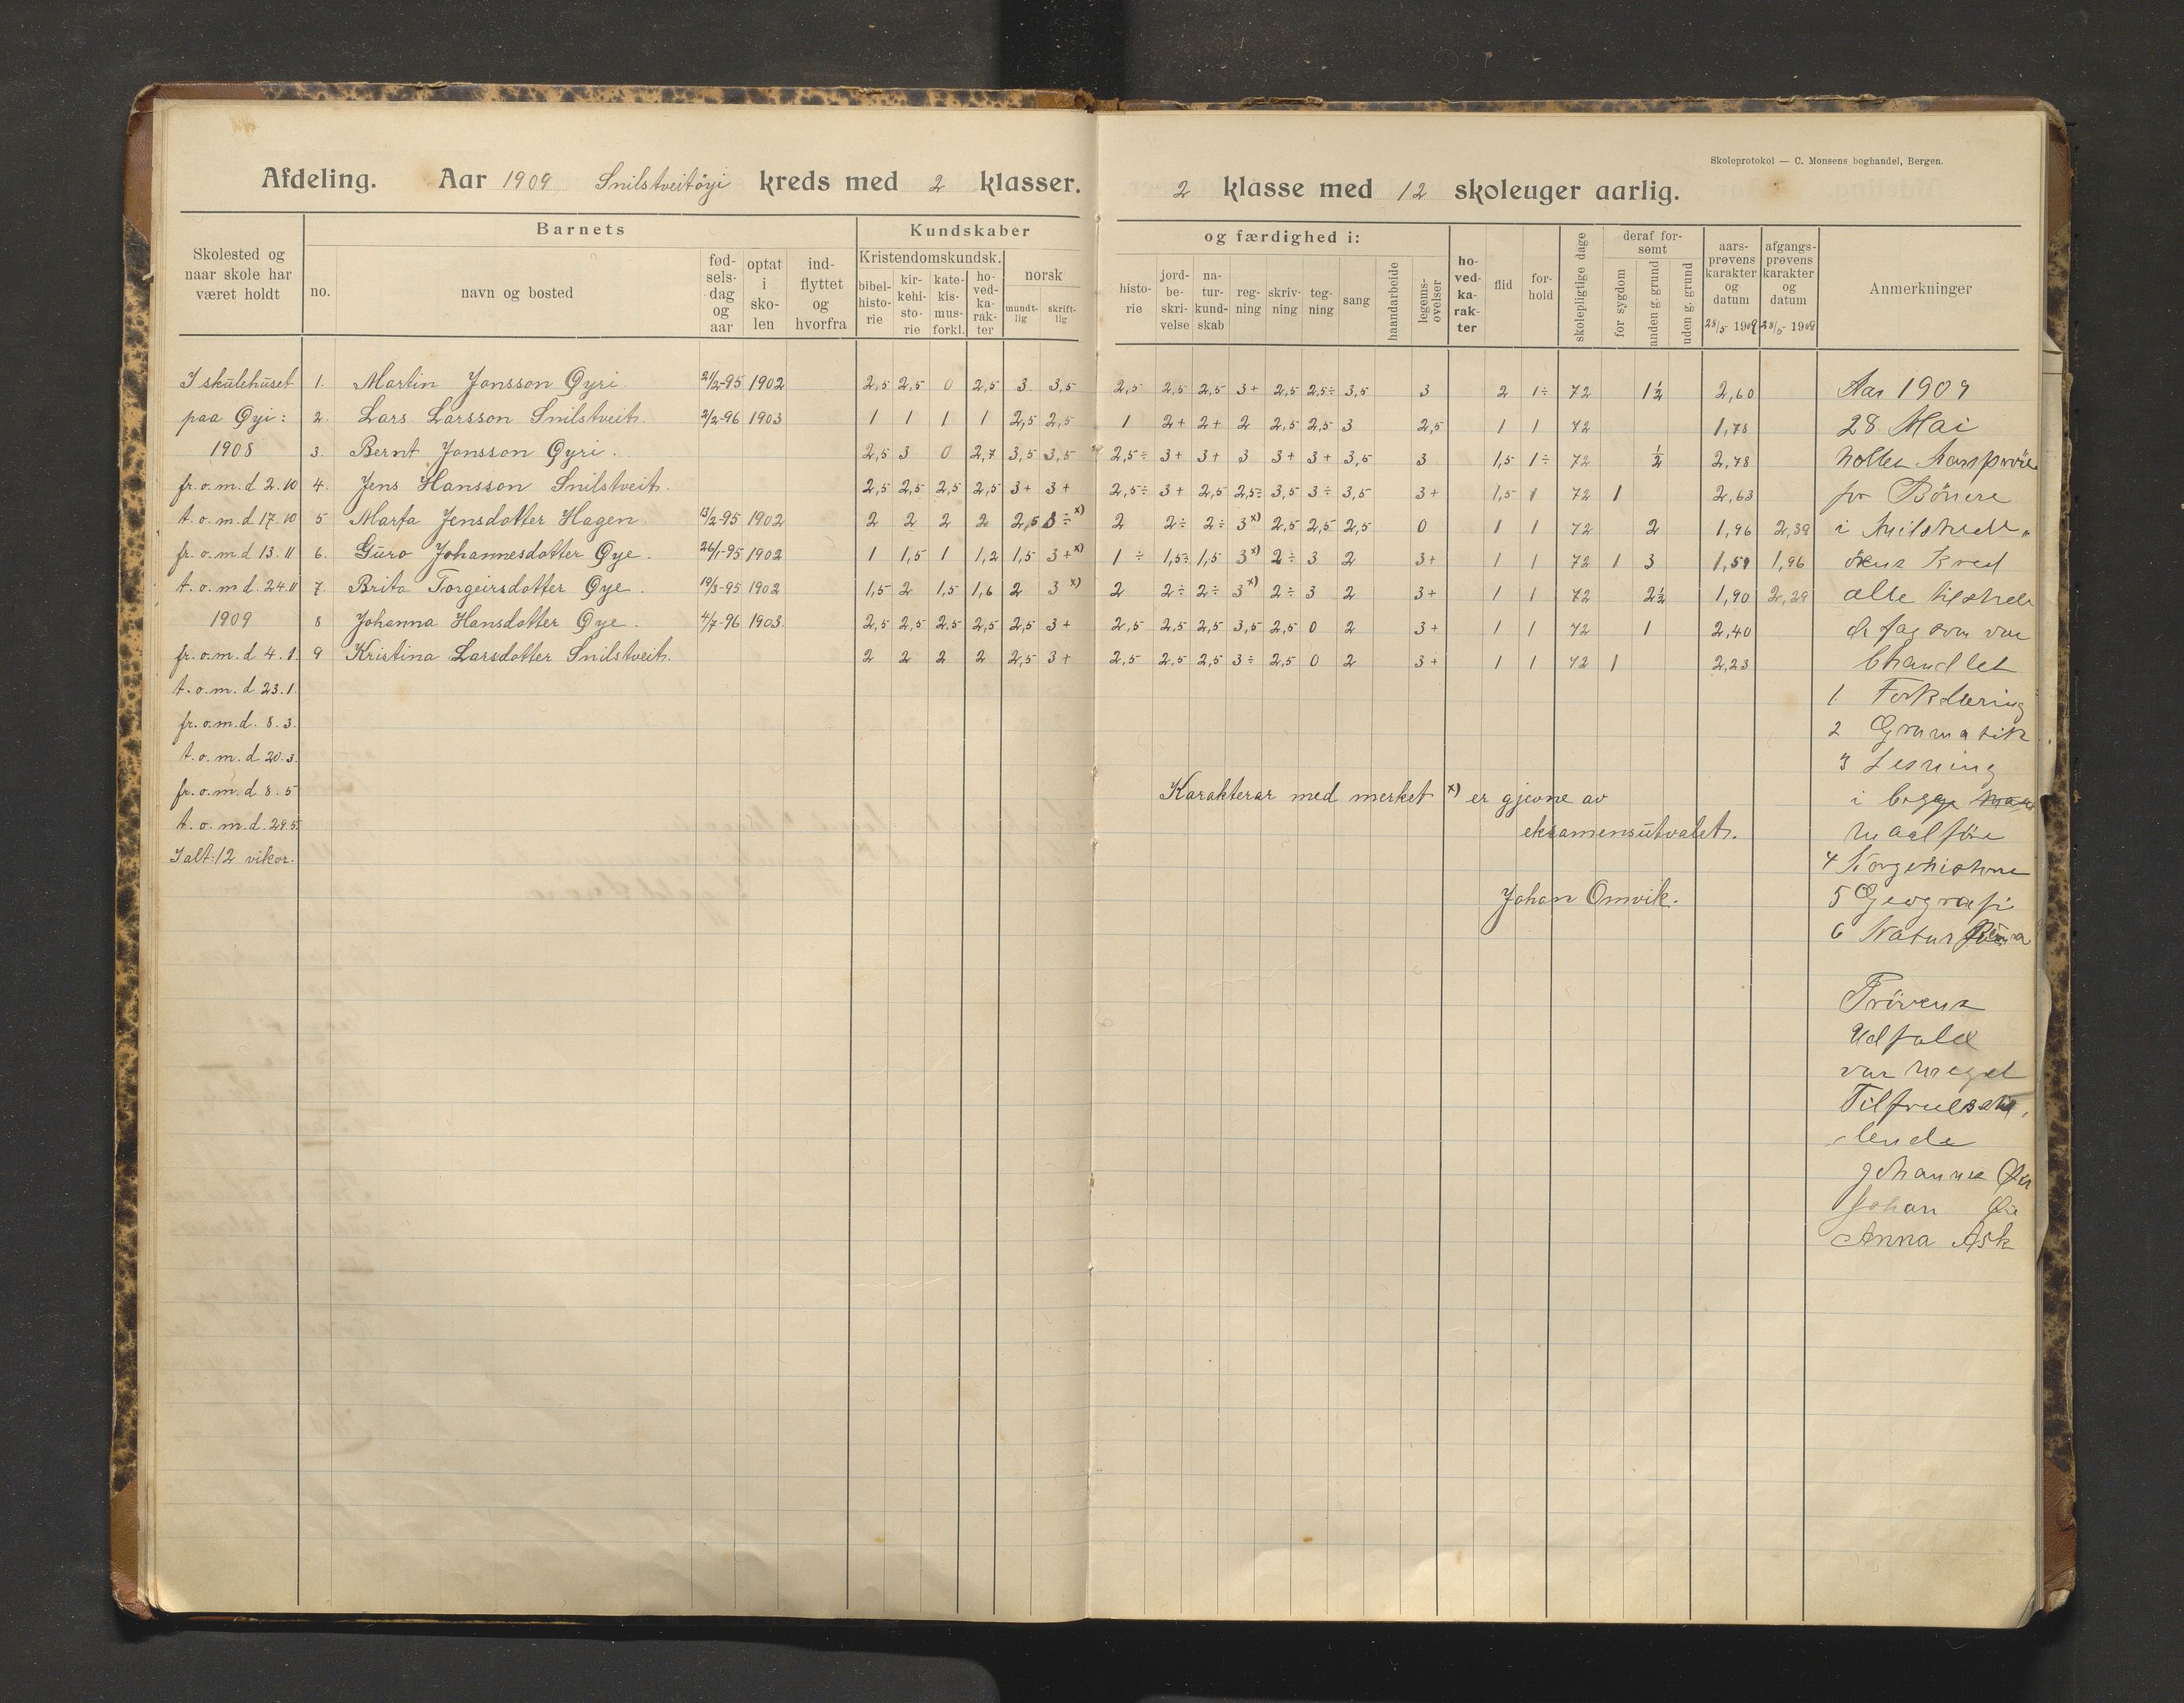 Skoleprotokol — C. Monsens boghandel, Bergen.
Afdeling. Aar 1909 Snilstveitöyi kreds med 2 klasser. 2 klasse med 12 skoleuger aarlig.
Skolested og naar skole har været holdt
Barnets
no. navn og bosted fødselsdag og aar optat i skolen indflyttet og hvorfra
Kundskaber og færdighed i:
Kristendomskundsk. bibelhistorie kirkehistorie katekismusforkl. hovedkarakter
norsk mundtlig skriftlig
historie jordbeskrivelse naturkundskab regning skrivning tegning sang haandarbeide legemsøvelser
hovedkarakter flid forhold skolepligtige dage
deraf forsømt for sygdom anden g. grund uden g. grund
aarsprøvens karakter og datum 28/5 1909
afgangsprøvens karakter og datum 28/5 1909
Anmerkninger
I skulehuset 1. Martin Jonsson Øyri 21/2-95 1902 2,5 2,5 0 2,5 3 3,5 2,5 2,5 2,5 3+ 2,5 2,5÷ 3,5 3 2 1÷ 72 1½ 2,60 Aar 1909
paa Øyi: 2. Lars Larsson Snilstveit. 2/2-96 1903 1 1 1 1 2,5 2,5 1 2+ 2+ 2 2,5 2,5 3 2,5 1 1 72 1,78 28 Mai
1908 3. Bernt Jonsson Øyri. 2,5 3 0 2,7 3,5 3,5 2,5÷ 3+ 3+ 3 3+ 3+ 3,5 3 1,5 1÷ 72 ½ 2,78 holtes Aarspröve
fr.o.m.d 2.10 4. Jens Hansson Snilstveit. 2,5 2,5 2,5 2,5 3+ 3+ 2,5÷ 3+ 2,5 2,5÷ 3,5 3÷ 3,5 3+ 1,5 1 72 1 2,63 for Börnene
t.o.m.d 17.10 5 Marta Jensdotter Hagen. 13/2-95 1902 2 2 2 2 2,5 3÷x) 2 2÷ 2÷ 3x) 2,5 2,5 2,5 0 1 1 72 2 1,96 2,39 i
fr.o.m.d 13.11 6. Guro Johannesdotter Øye. 26/1-95 1902 1 1,5 1 1,2 1,5 3+x) 1÷ 1,5÷ 1,5 3x) 2÷ 3 2 3+ 1 1 72 1 3 1,59 1,96 Kred
t.o.m.d. 24.11 7. Brita Torgeirsdotter Øye. 19/3-95 1902 1,5 2 1,5 1,6 2 3x) 2 2÷ 2÷ 3x) 2÷ 3 2 3+ 1 1 72 2½ 1,90 2,29 alle tilstede
1909 8 Johanna Hansdotter Øye. 4/7-96 1903. 2,5 2,5 2,5 2,5 2,5 3+ 2,5 2,5 2,5 3,5 2,5 0 2 3+ 1 1 72 1 2,40 fag som var
fr.o.m.d 4.1. 9 Kristina Larsdotter Snilstveit. 2 2 2 2 2,5 3+ 2,5 2,5 2,5 3÷ 2,5 0 2 3+ 1 1 72 1 2,23 bhandlet
t.o.m.d 23.1. 1 Forklaring
fr.o.m.d. 8.3. 2 Gramatik
t.o.m.d 20.3. 3 Lesning
fr.o.m.d 8.5 Karakterar med merket x) er gjevne av i begge
t.o.m.d. 29.5. eksamensutvalet. maalföre
I alt: 12 vikor. 4 Norgehistorie
Johan Omvik. 5 Geografi
6 Natur
Prövens
Udfald
var meget
Tilfredsstil
lende
Johannes Øie
Johan Øie
Anna Ask